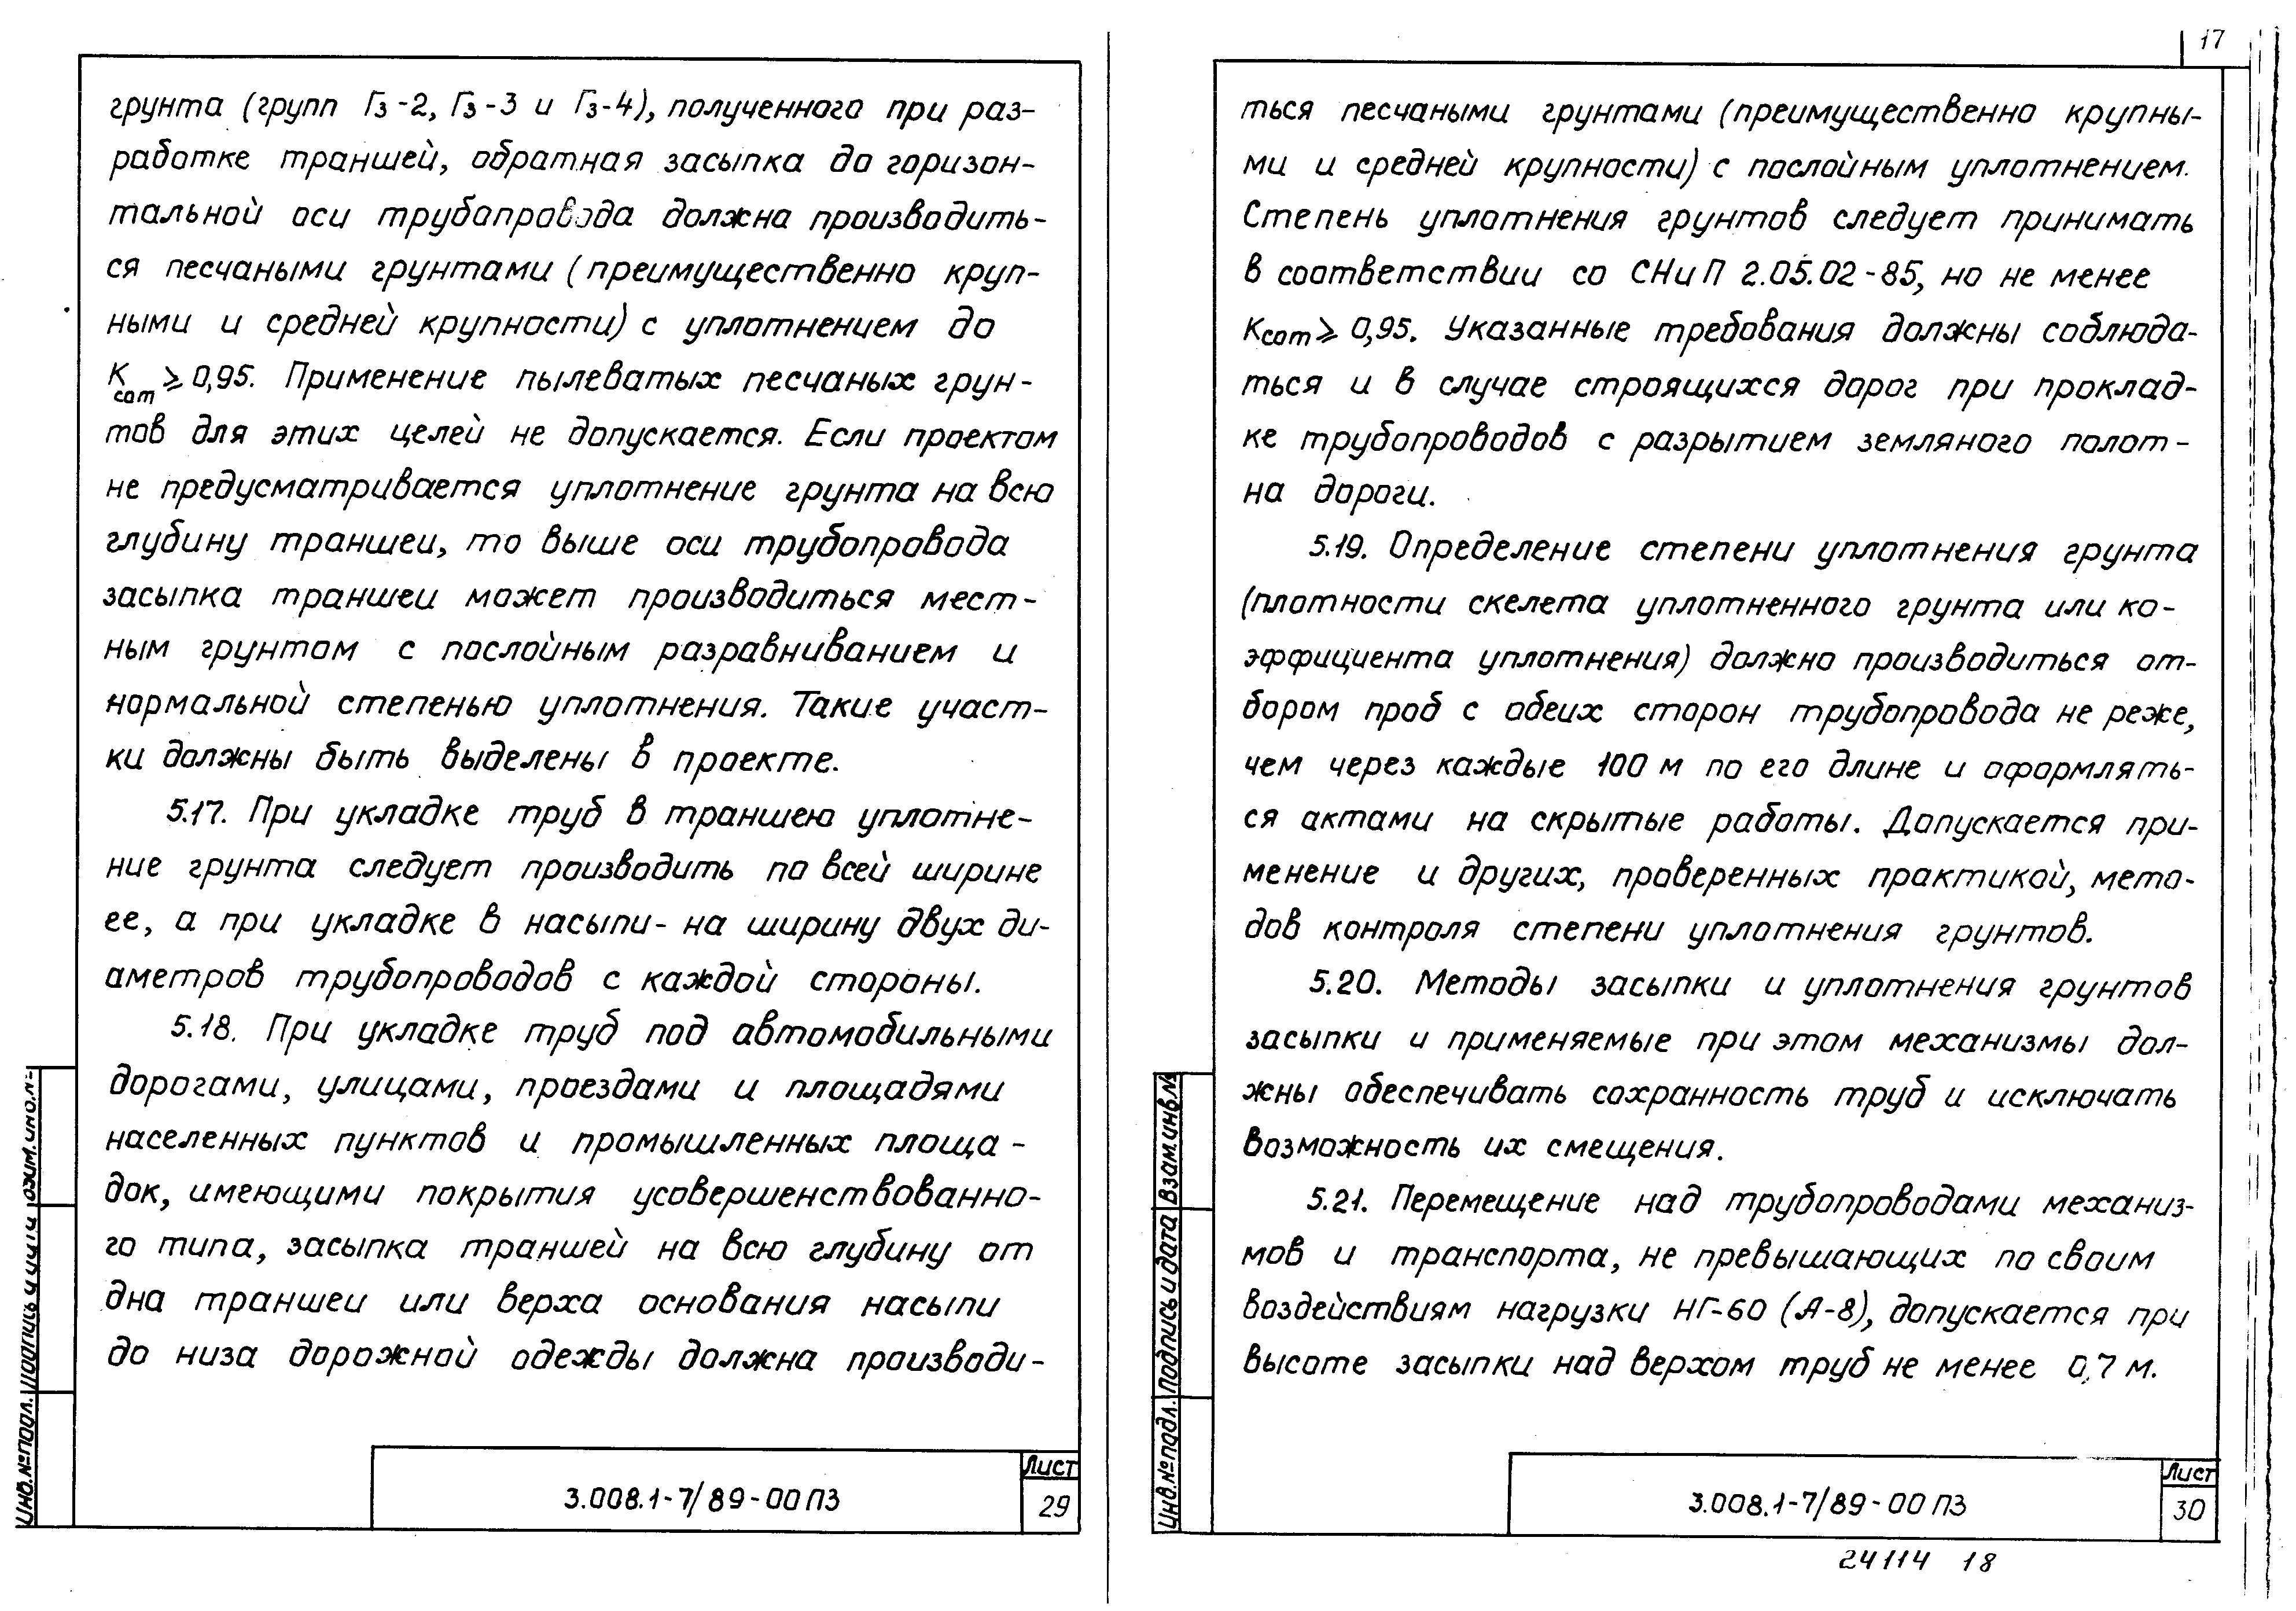 грунта (групп Гз-2, Гз-3 и Гз-4), полученного при раз-
работке траншей, обратная засыпка до горизон-
тальной оси трубопровода должна производить-
ся песчаными грунтами (преимущественно круп-
ными и средней крупности) с уплотнением до
Kcom ≥ 0,95. Применение пылеватых песчаных грун-
тов для этих целей не допускается. Если проектом
не предусматривается уплотнение грунта на всю
глубину траншеи, то выше оси трубопровода
засыпка траншеи может производиться мест-
ным грунтом с послойным разравниванием и
нормальной степенью уплотнения. Такие участ-
ки должны быть выделены в проекте.
5.17. При укладке труб в траншею уплотне-
ние грунта следует производить по всей ширине
ее, а при укладке в насыпи - на ширину двух ди-
аметров трубопроводов с каждой стороны.
5.18. При укладке труб под автомобильными
дорогами, улицами, проездами и площадями
населенных пунктов и промышленных площа-
док, имеющими покрытия усовершенствованно-
го типа, засыпка траншей на всю глубину от
дна траншеи или верха основания насыпи
до низа дорожной одежды должна производи-
3.008.1-7/89-00ПЗ
Лист
29
Инв.№подл.
17
ться песчаными грунтами (преимущественно крупны-
ми и средней крупности) с послойным уплотнением.
Степень уплотнения грунтов следует принимать
в соответствии со СНиП 2.05.02-85, но не менее
Kcom ≥ 0,95. Указанные требования должны соблюда-
ться и в случае строящихся дорог при проклад-
ке трубопроводов с разрытием земляного полот-
на дороги.
5.19. Определение степени уплотнения грунта
(плотности скелета уплотненного грунта или ко-
эффициента уплотнения) должно производиться от-
бором проб с обеих сторон трубопровода не реже,
чем через каждые 100 м по его длине и оформлять-
ся актами на скрытые работы. Допускается при-
менение и других, проверенных практикой, мето-
дов контроля степени уплотнения грунтов.
5.20. Методы засыпки и уплотнения грунтов
засыпки и применяемые при этом механизмы дол-
жны обеспечивать сохранность труб и исключать
возможность их смещения.
5.21. Перемещение над трубопроводами механиз-
мов и транспорта, не превышающих по своим
воздействиям нагрузки НГ-60 (А-8), допускается при
высоте засыпки над верхом труб не менее 0,7 м.
3.008.1-7/89-00ПЗ
Лист
30
Инв.№подл. Подпись и дата Взам.инв.№
24114 18